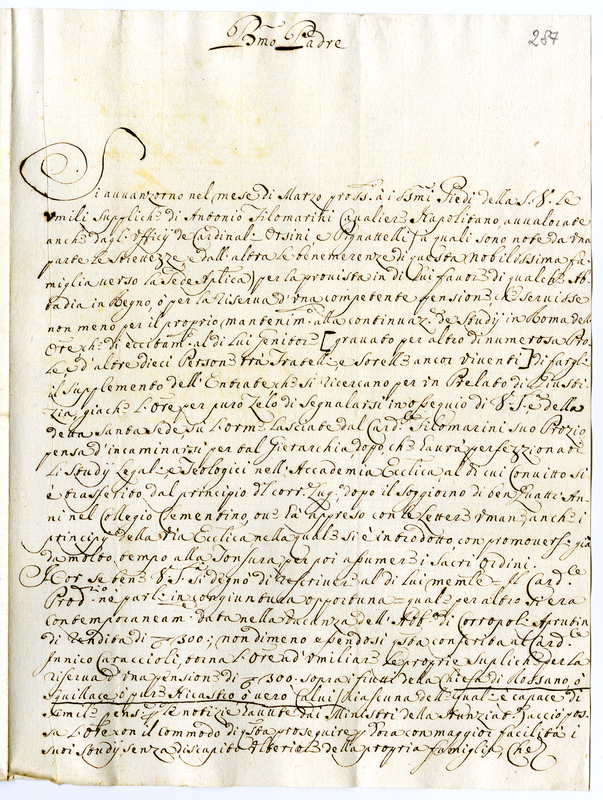 287
B.mo Padre
Si auuanzorno nel mese di Marzo pross.o à i S.smi Piedi della S. V. le
vmili Supplich.e di Antonio Filomarini Caualier.e Napolitano, auualorate
anch.e dagl'Officÿ de Cardinal.i Orsini e Pignattelli (a quali sono note da vna
parte le strettezze e dall'altra le benemerenze di questa nobilissima fa-
miglia verso la Sede Aplica) per la prouista in di Lui fauor.e di qualch.e Ab-
badia in Regno, ò per la riserua d'vna competente pension.e ch.e seruisse
non meno per il proprio mantenim.to alla continuaz.e de Studÿ in Roma dell'
Ore ch.e di eccitam.to al di lui Genitor.e [grauato per altro di numerosa Pro-
le e d'altre dieci Person.e tra Fratell.i e Sorell.e ancor viuenti] di fargl.i
il supplemento dell'Entrate ch.e si ricercano per vn Prelato di Giusti-
zia, giach.e l'Ore per puro zelo di segnalarsi in ossequio di V. S.e e della
detta Santa Sede, su l'orm.e lasciate dal Card.le Filomarini suo Prozio
pensa d'incaminarsi per tal Gierarchia dopo ch.e haurà perfezzionati
li Studÿ Legal.i e Teologici nell'Accademia Ecclica, al di cui Conuitto si
è trasferito dal principio d'l corr. Lug.o dopo il soggiorno di ben quatt.o An-
ni nel Collegio Clementino, ou.e hà appreso con le Letter.e vman.e anch.e i
principÿ della via Ecclica nella qual.e si è introdotto, con promouers.e già
da molto tempo alla Tonsura per poi assumer.e i Sacri Ordini.
Hor se ben.e V. S. si degnò di rescriuer.e al di lui mem.le = Al Card.le
Prod.rio né parl.i in congiuntura opportuna = qual.e per altro si era
contemporaneam.te data nella vacanza dell'Abb.a di Corropol.i Aprutin.
di rendita di 300; nondimeno essendosi qsta conferita al Card.le
Innico Caraccioli, torna l'Ore ad vmiliar.e le proprie Suplich.e per la
riserua d'vna pension.e di 300. sopra i frutti della Chiesa di Rossano, ò
Squillace ò pur.e Aicastro ò vero Cariui (ciascuna dell.e qual.i è capace di
simil.e pens.e p. le notizie hauute dai Ministri della Nunziat.a) acciò pos-
sa l'Ore con il commodo di qsta proseguire p. ora con maggior facilità i
suoi Studÿ senza discapito vlterior.e della propria famiglia, Che